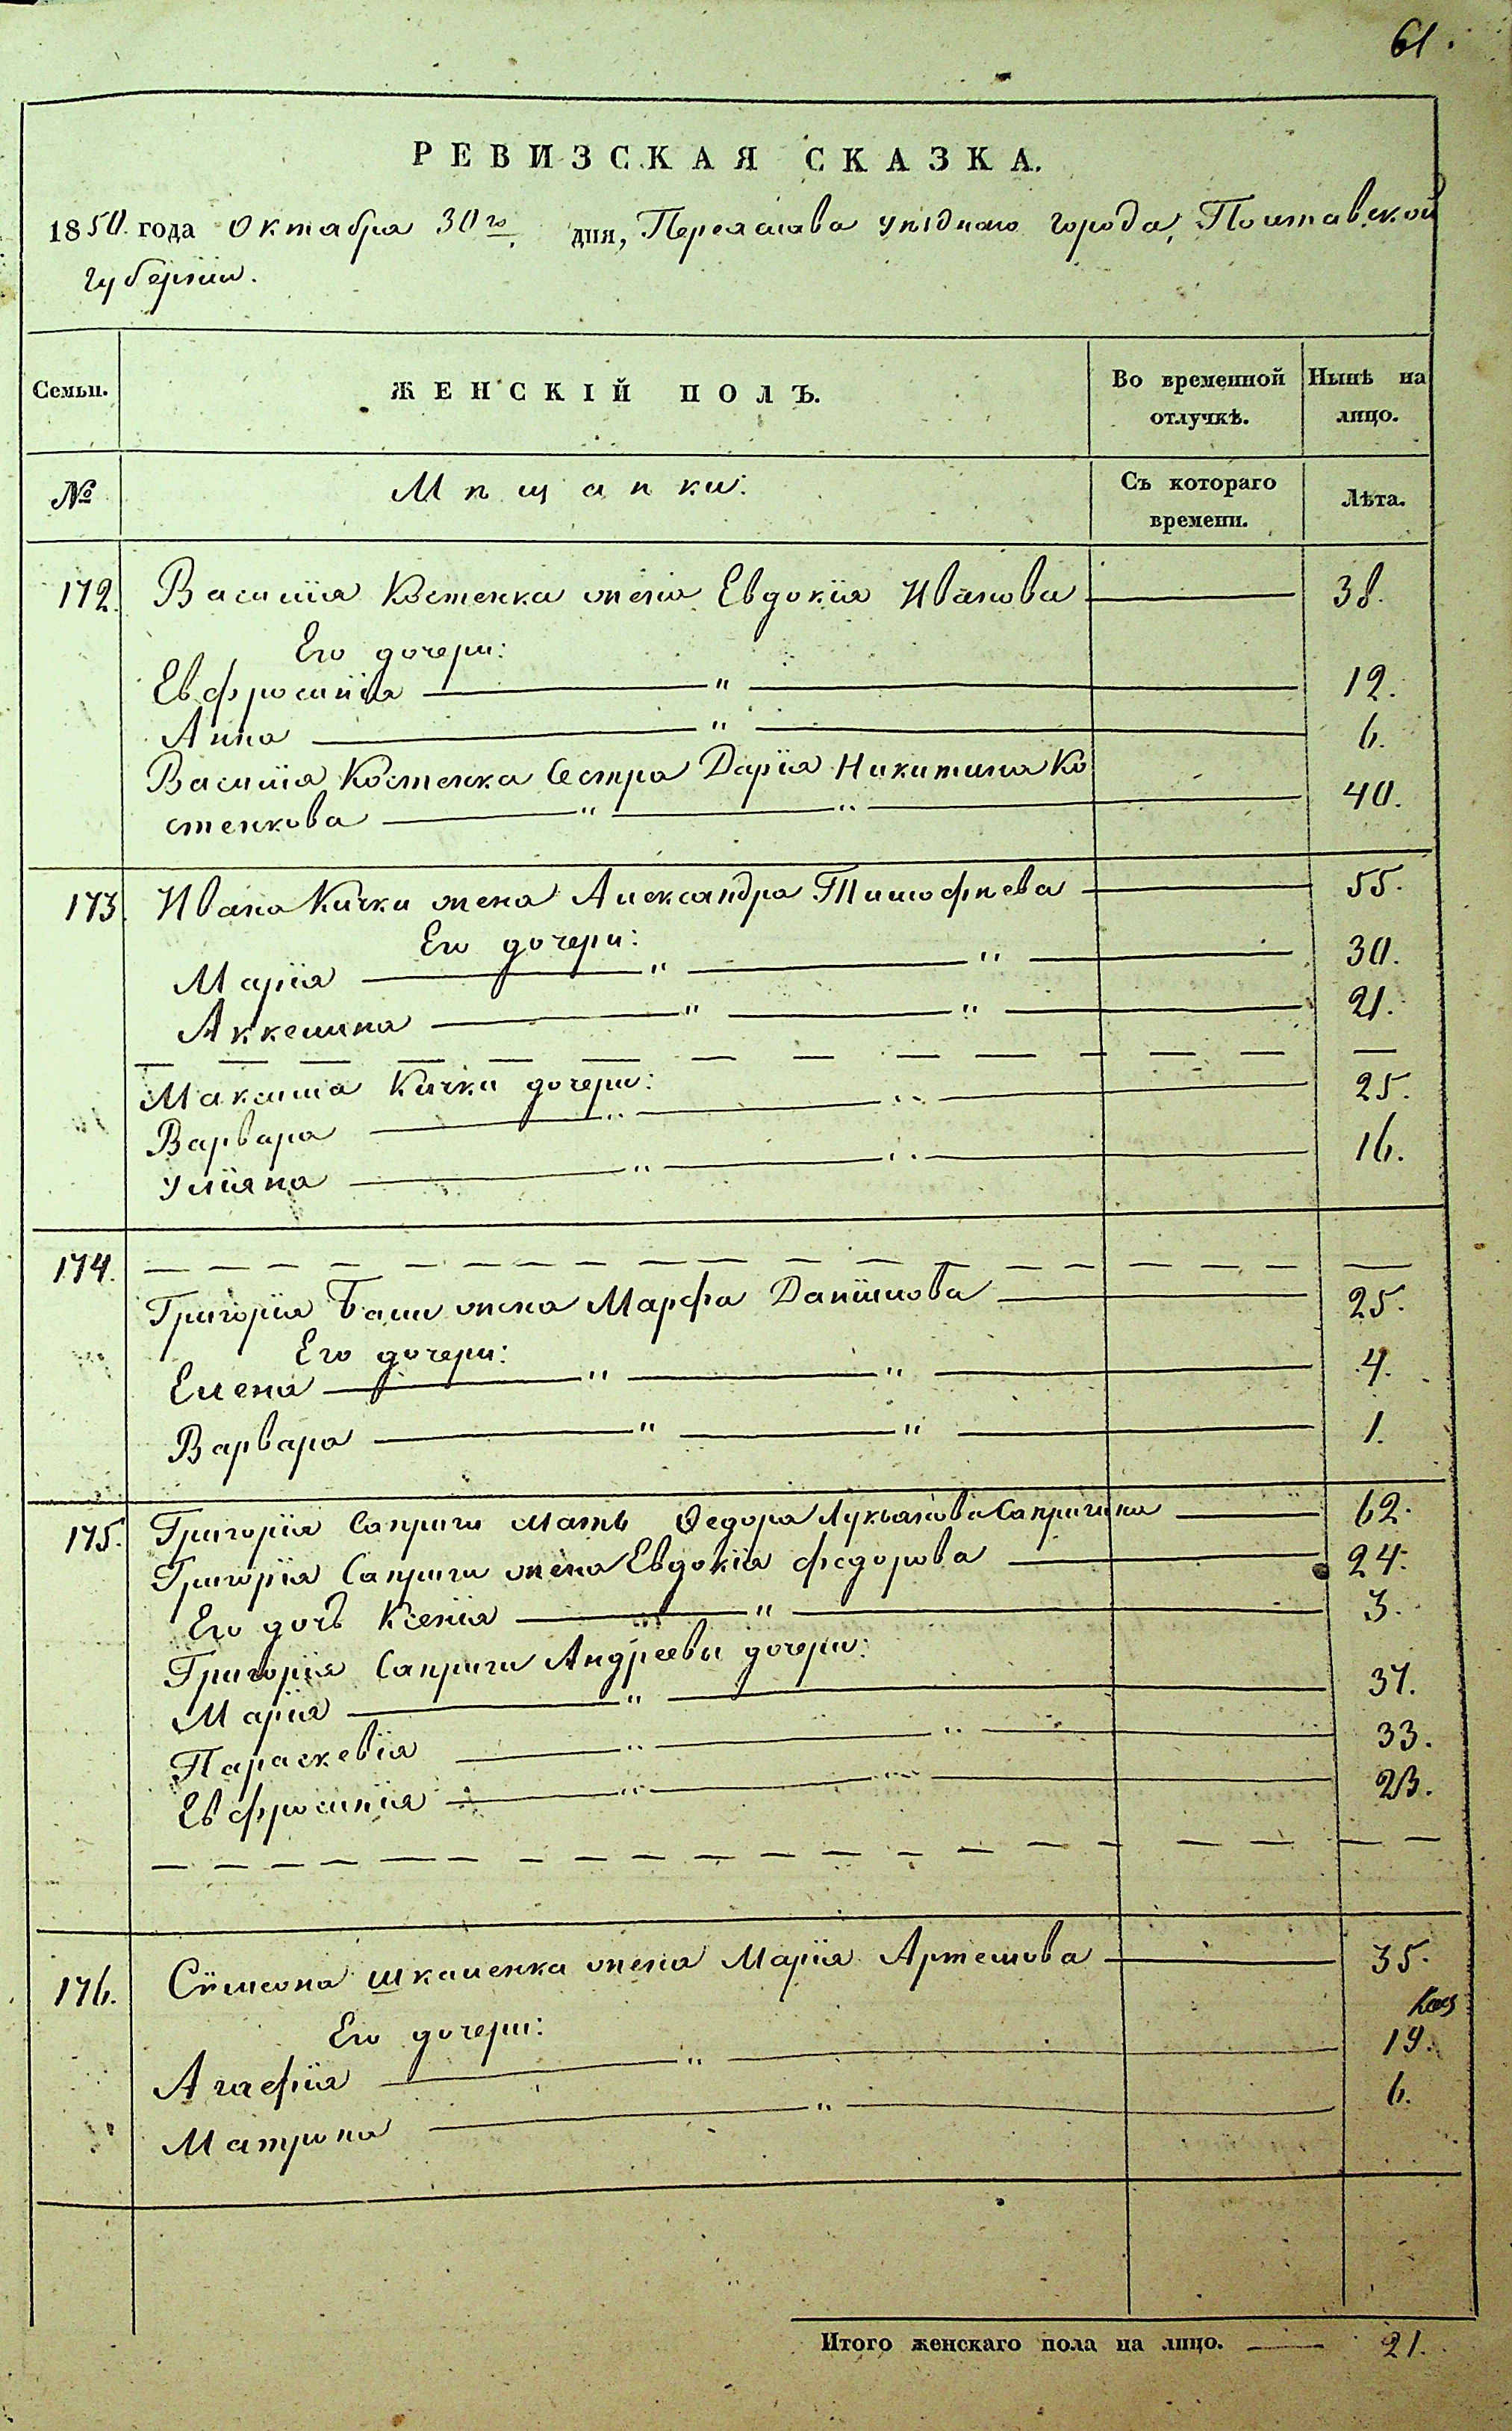 61.
РЕВИЗСКАЯ СКАЗКА.
1850 года Октября 30го дня, Переяслава уѣзднаго города, Полтавской
губерніи.
Семьи. ЖЕНСКІЙ ПОЛЪ. Во временной отлучкѣ. Нынѣ на лицо.
№ Мѣщанки: Съ котораго времени. Лѣта.
172. Василія Костенка жена Евдокія Иванова 38.
Его дочери:
Евфросинія " 12.
Анна " 6.
Василія Костенка Сестра Дарія Никитина Ко
стенкова " " 40.
173. Ивана Кички жена Александра Тимофѣева 55.
Его дочери:
Марія " " 30.
Аккелина " " 21.
Максима Кички дочери:
Варвара " " 25.
Уліяна " " 16.
174.
Григорія Бали жена Марфа Даніилова 25.
Его дочери:
Елена " " 4.
Варвара " " 1.
175. Григорія Саприги мать Ѳедора Лукьянова Сапригина 62.
Григорія Саприги жена Евдокія Федорова 24.
Его дочь Ксенія " 3.
Григорія Саприги Андреевы дочери:
Марія " 37.
Параскевія " " 33.
Евфросинія " " 23.
176. Сѵмеона Шкаленка жена Марія Артемова 35.
Его дочери:
Агафія " 19.
Матрона " 6.
Итого женскаго пола на лицо. 21.